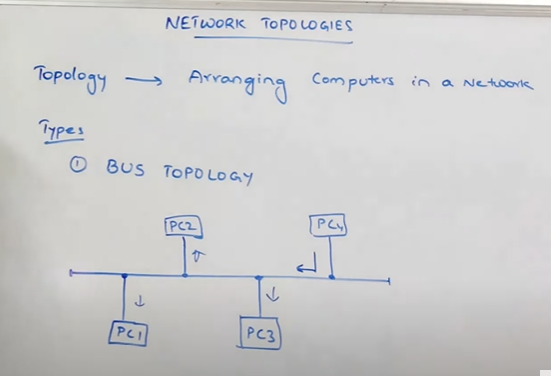 NETWORK TOPOLOGIES
Topology → Arranging Computers in a Network
Types
① BUS TOPOLOGY
PC2 PC4
PC1 PC3